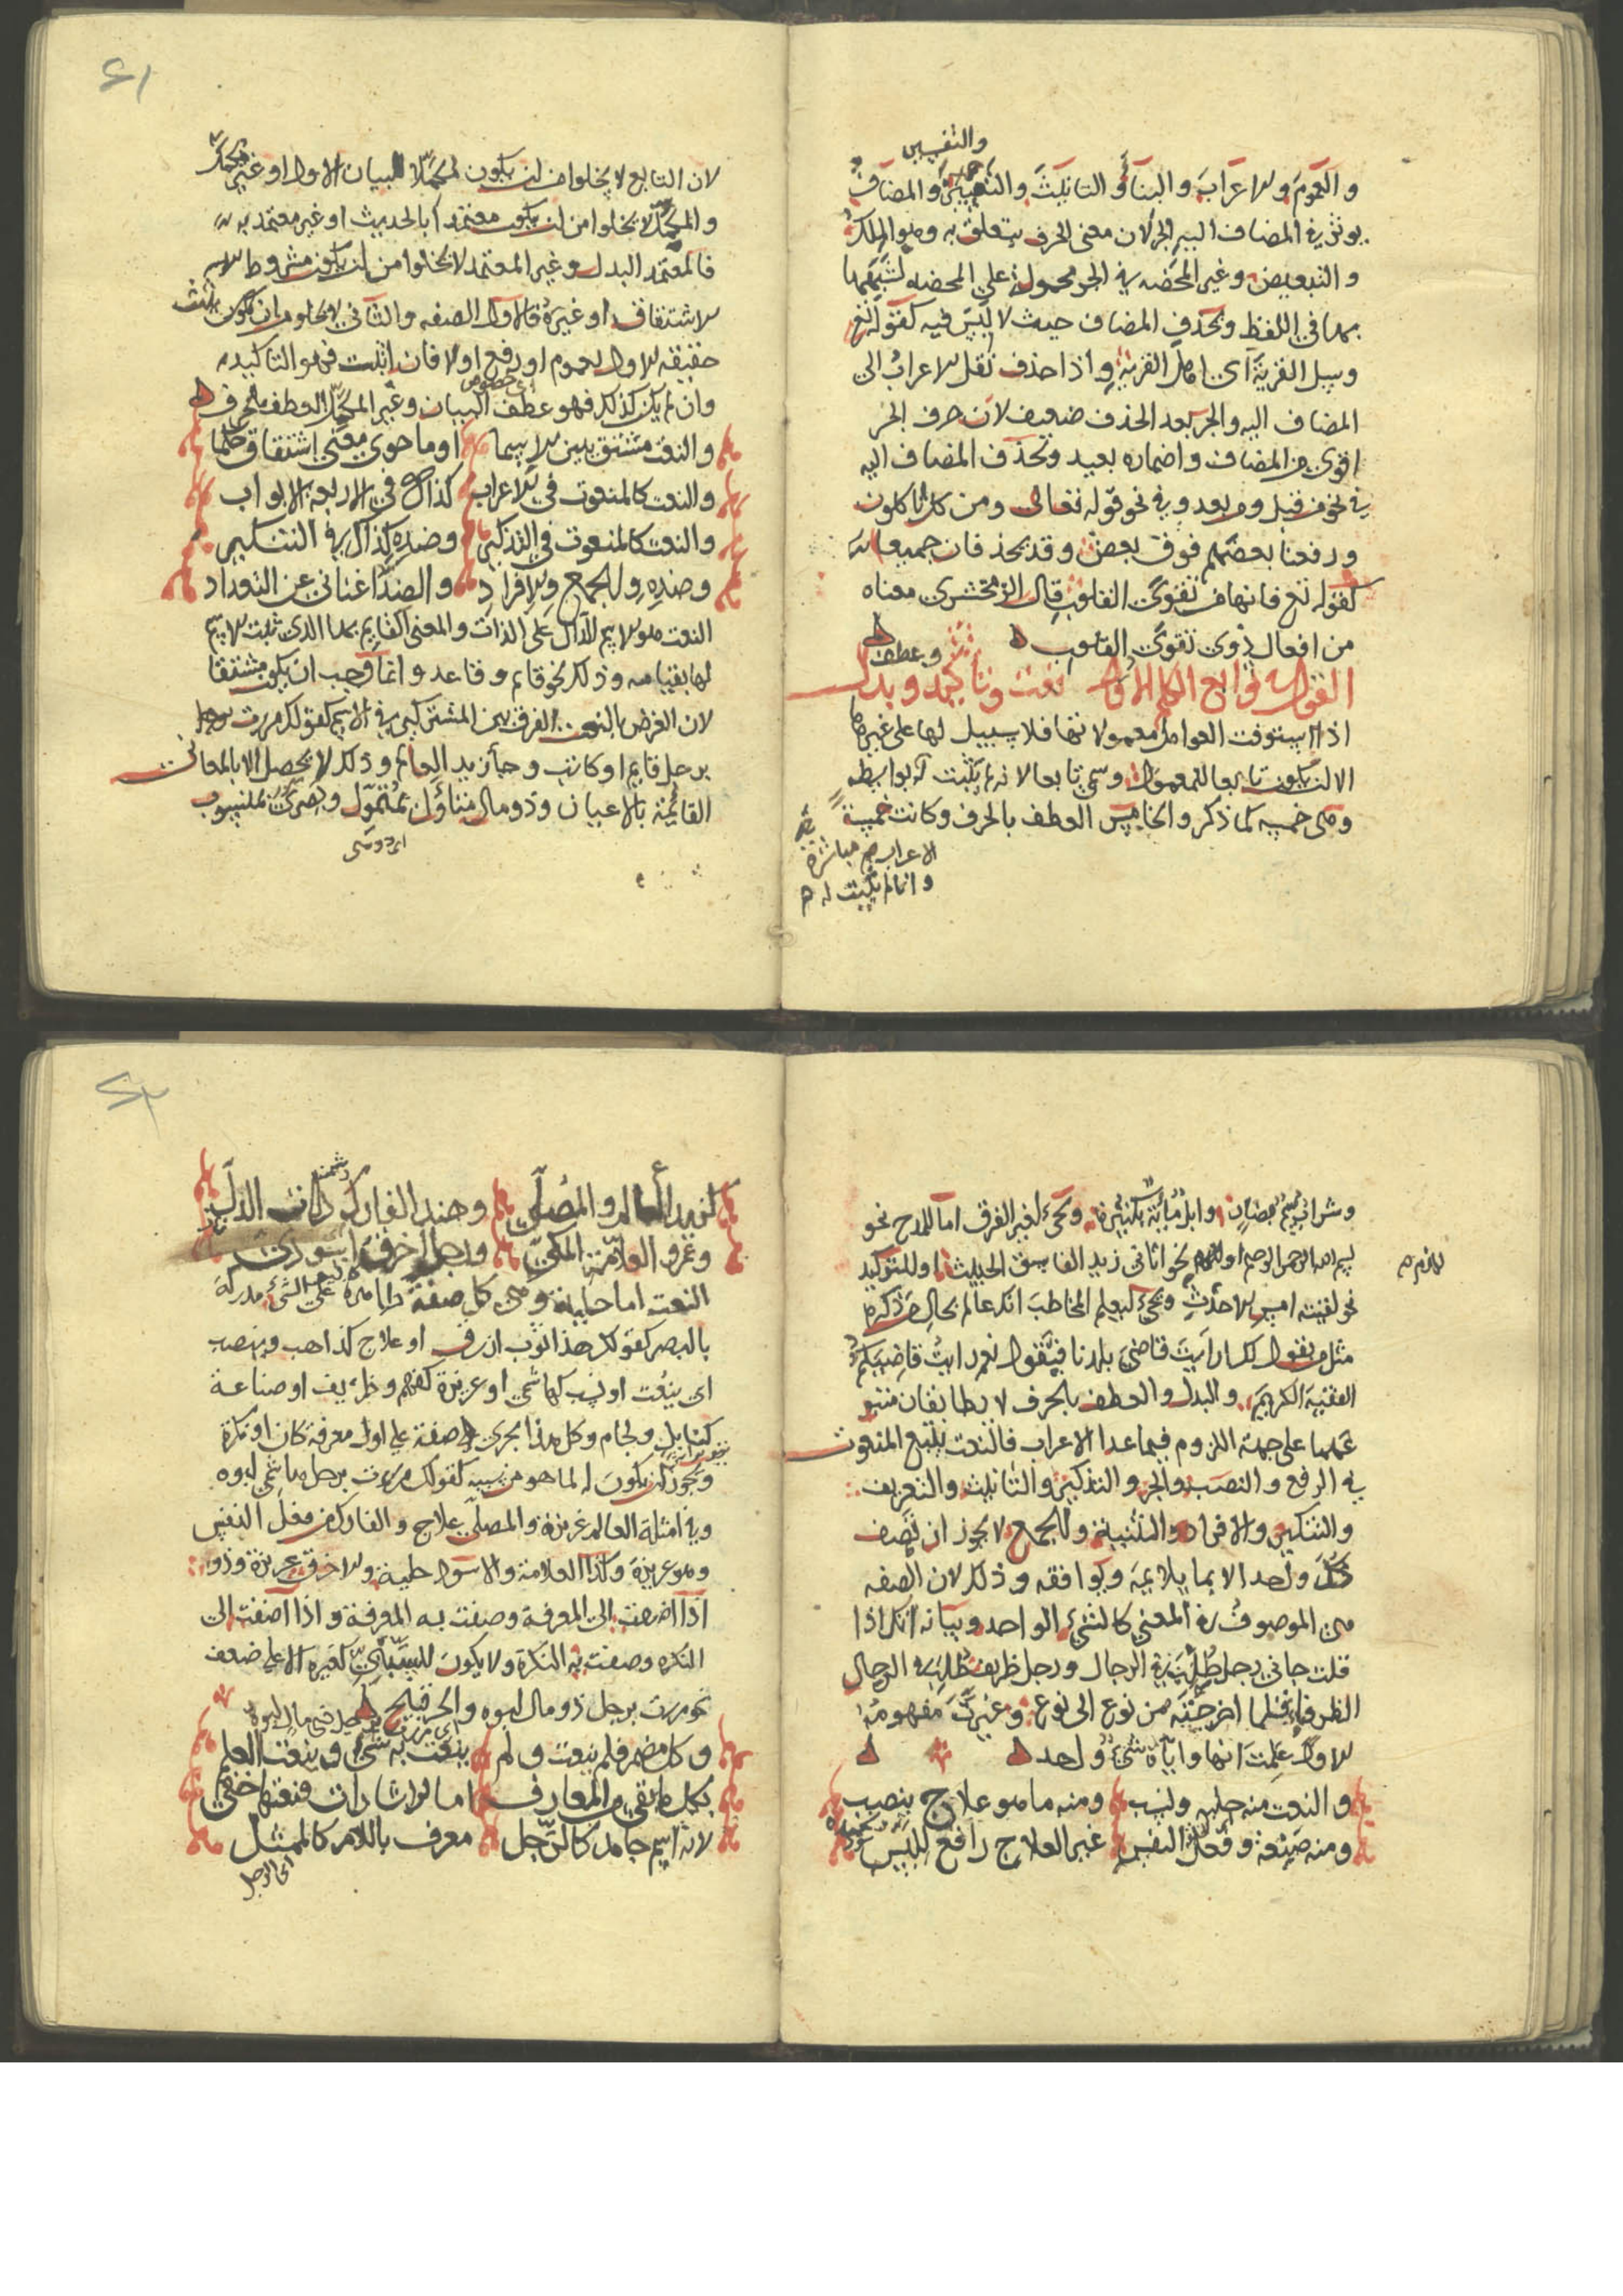 والتفسير
والعموم والاعراب والبنا والتانيث والتعيين والمضاف
يوثر في المضاف اليه الجر لان معنى الحرف يتعلق به وهو الملك
والتبعيض وغير المحضه في الجر محمولة على المحضه لشبهها
بها في اللفظ وبحذف المضاف حيث لا لبس فيه كقوله تع
وسل القرية اي اهل القرية واذا حذف نقل الاعراب الى
المضاف اليه والجر بعد الحذف ضعيف لان حرف الجر
اقوى من المضاف واضماره بعيد وتحذف المضاف اليه
في نحو من قبل ومن بعد وفي نحو قوله تعالى ومن كل تاكلون
ورفعنا بعضهم فوق بعض وقد يحذفان جميعا
كقوله تع فانها من تقوى القلوب قال الزمخشري معناه
من افعال ذوي تقوى القلوب
وعطف
القول في توابع الكلم الاول نعت وتاكيد وبدل
اذا استوفت العوامل معمولاتها فلا سبيل لها على غيرها
الا ان يكون تابعا للمعمول وسمي تابعا لانه لم يثبت له بواسطه
وهي خمسه كما ذكر والخامس العطف بالحرف وكانت خمسة
الاعراب مباشرة
وانما لم يثبت له
٤١
لان التابع لا يخلوا من ان يكون مكملا لبيان الاول او غير مكمل
والمكمل لا يخلوا من ان يكون معتمدا بالحديث او غير معتمد به
فالمعتمد البدل وغير المعتمد لا يخلوا من ان يكون مشروطا
الاشتقاق او غيره فالاول الصفه والثاني لا يخلو من ان يكون يثبت
حقيقه الاول بعموم او رفع اولا فان اثبت فهو التاكيد
اي خصوص
وان لم يكن كذلك فهو عطف البيان وغير المكمل العطف بالحرف
والنعت مشتق يبين الاسما او ما حوى معنى اشتقاق حكما
والنعت كالمنعوت في الاعراب كذاك في الاربعة الابواب
والنعت كالمنعوت في التذكير وضده كذاك في التنكير
وضده والجمع والافراد والضد اغناني عن التعداد
النعت هو الاسم الدال على الذات والمعنى القايم بها الذي ثبت الاسم
لها بقيامه وذلك نحو قايم وقاعد وانما وجب ان يكون مشتقا
لان الغرض بالنعت الفرق بين المشتركين في الاسم كقولك مررت
برجل قايم او كاتب وجا زيد العالم وذلك لا يحصل الا بالمعاني
القائمة بالاعيان وذو مال متناول بمتمول وبصري بمنسوب
وشراب بمصاب وابل مائة بكثيرة ويجي لغير الفرق اما للمدح نحو
بسم الله الرحمن الرحيم او للذم نحو اتاني زيد الفاسق الخبيث او للتوكيد
للذم
نحو لقيته امس الاحدث ويجي ليعلم المخاطب انك عالم بحال من ذكره
مثل من يقول لك ارايت قاضي بلدنا فيقول نعم رايت قاضيكم
الفقيه الكريم والبدل والعطف بالحرف لا يطابقان متبو
عهما على جهة اللزوم فيما عدا الاعراب فالنعت يتبع المنعوت
في الرفع والنصب والجر والتذكير والتانيث والتعريف
والتنكير والافراد والتثنية والجمع لا يجوز ان تصف
كل واحد الا بما يلايمه ويوافقه وذلك لان الصفه
هي الموصوف في المعنى كالشيء الواحد وبيانه انك اذا
قلت جاني رجل طلبته في الرجال ورجل ظريف طلبته في الرجال
الظرفاء فلما اخرجته من نوع الى نوع وغيرت مفهومه
الاول علمت انها واياه شيء واحد
والنعت منه حلية ونسب ومنه ما هو علاج ينصب
ومنه صنعة وفعل النفس غير العلاج رافع للبس
٤٢
كزيد العالم والمصلي وهند الفارك ذات الدل
وعمرو العلامة المكي ورجل اخرق اسود
النعت اما حلية وهي كل صفة ظاهرة على الشيء مدركة
بالبصر كقولك هذا ثوب ازرق او علاج كذاهب وينصب
اي ينعت او نسب كهاشمي او غريزة كفهم وظريف او صناعة
كنابل ولجام وكل هذا يجري صفة على اول معرفة كان او نكرة
ويجوز ان يكون له لما هو من سببه كقولك مررت برجل هاشمي ابوه
وفي امثلة العالم غريزة والمصلي علاج والفارك من فعل النفس
وهو غريزة وكذا العلامة والاسود حلية والاخرق غريزة وذو
اذا اضيفت الى المعرفة وصفت به المعرفة واذا اضفت الى
النكره وصفت به النكرة ولا يكون للسببي كغيره الا على ضعف
نحو مررت برجل ذو مال ابوه والجر قبيح
وكل مضمر فلم ينعت ولم ينعت به شيء وينعت العلم
بكل ما بقي من المعارف اما الاشارات فنعتها خفي
لانه اسم جامد كالرجل معرف باللام كالممثل
اي الرجل